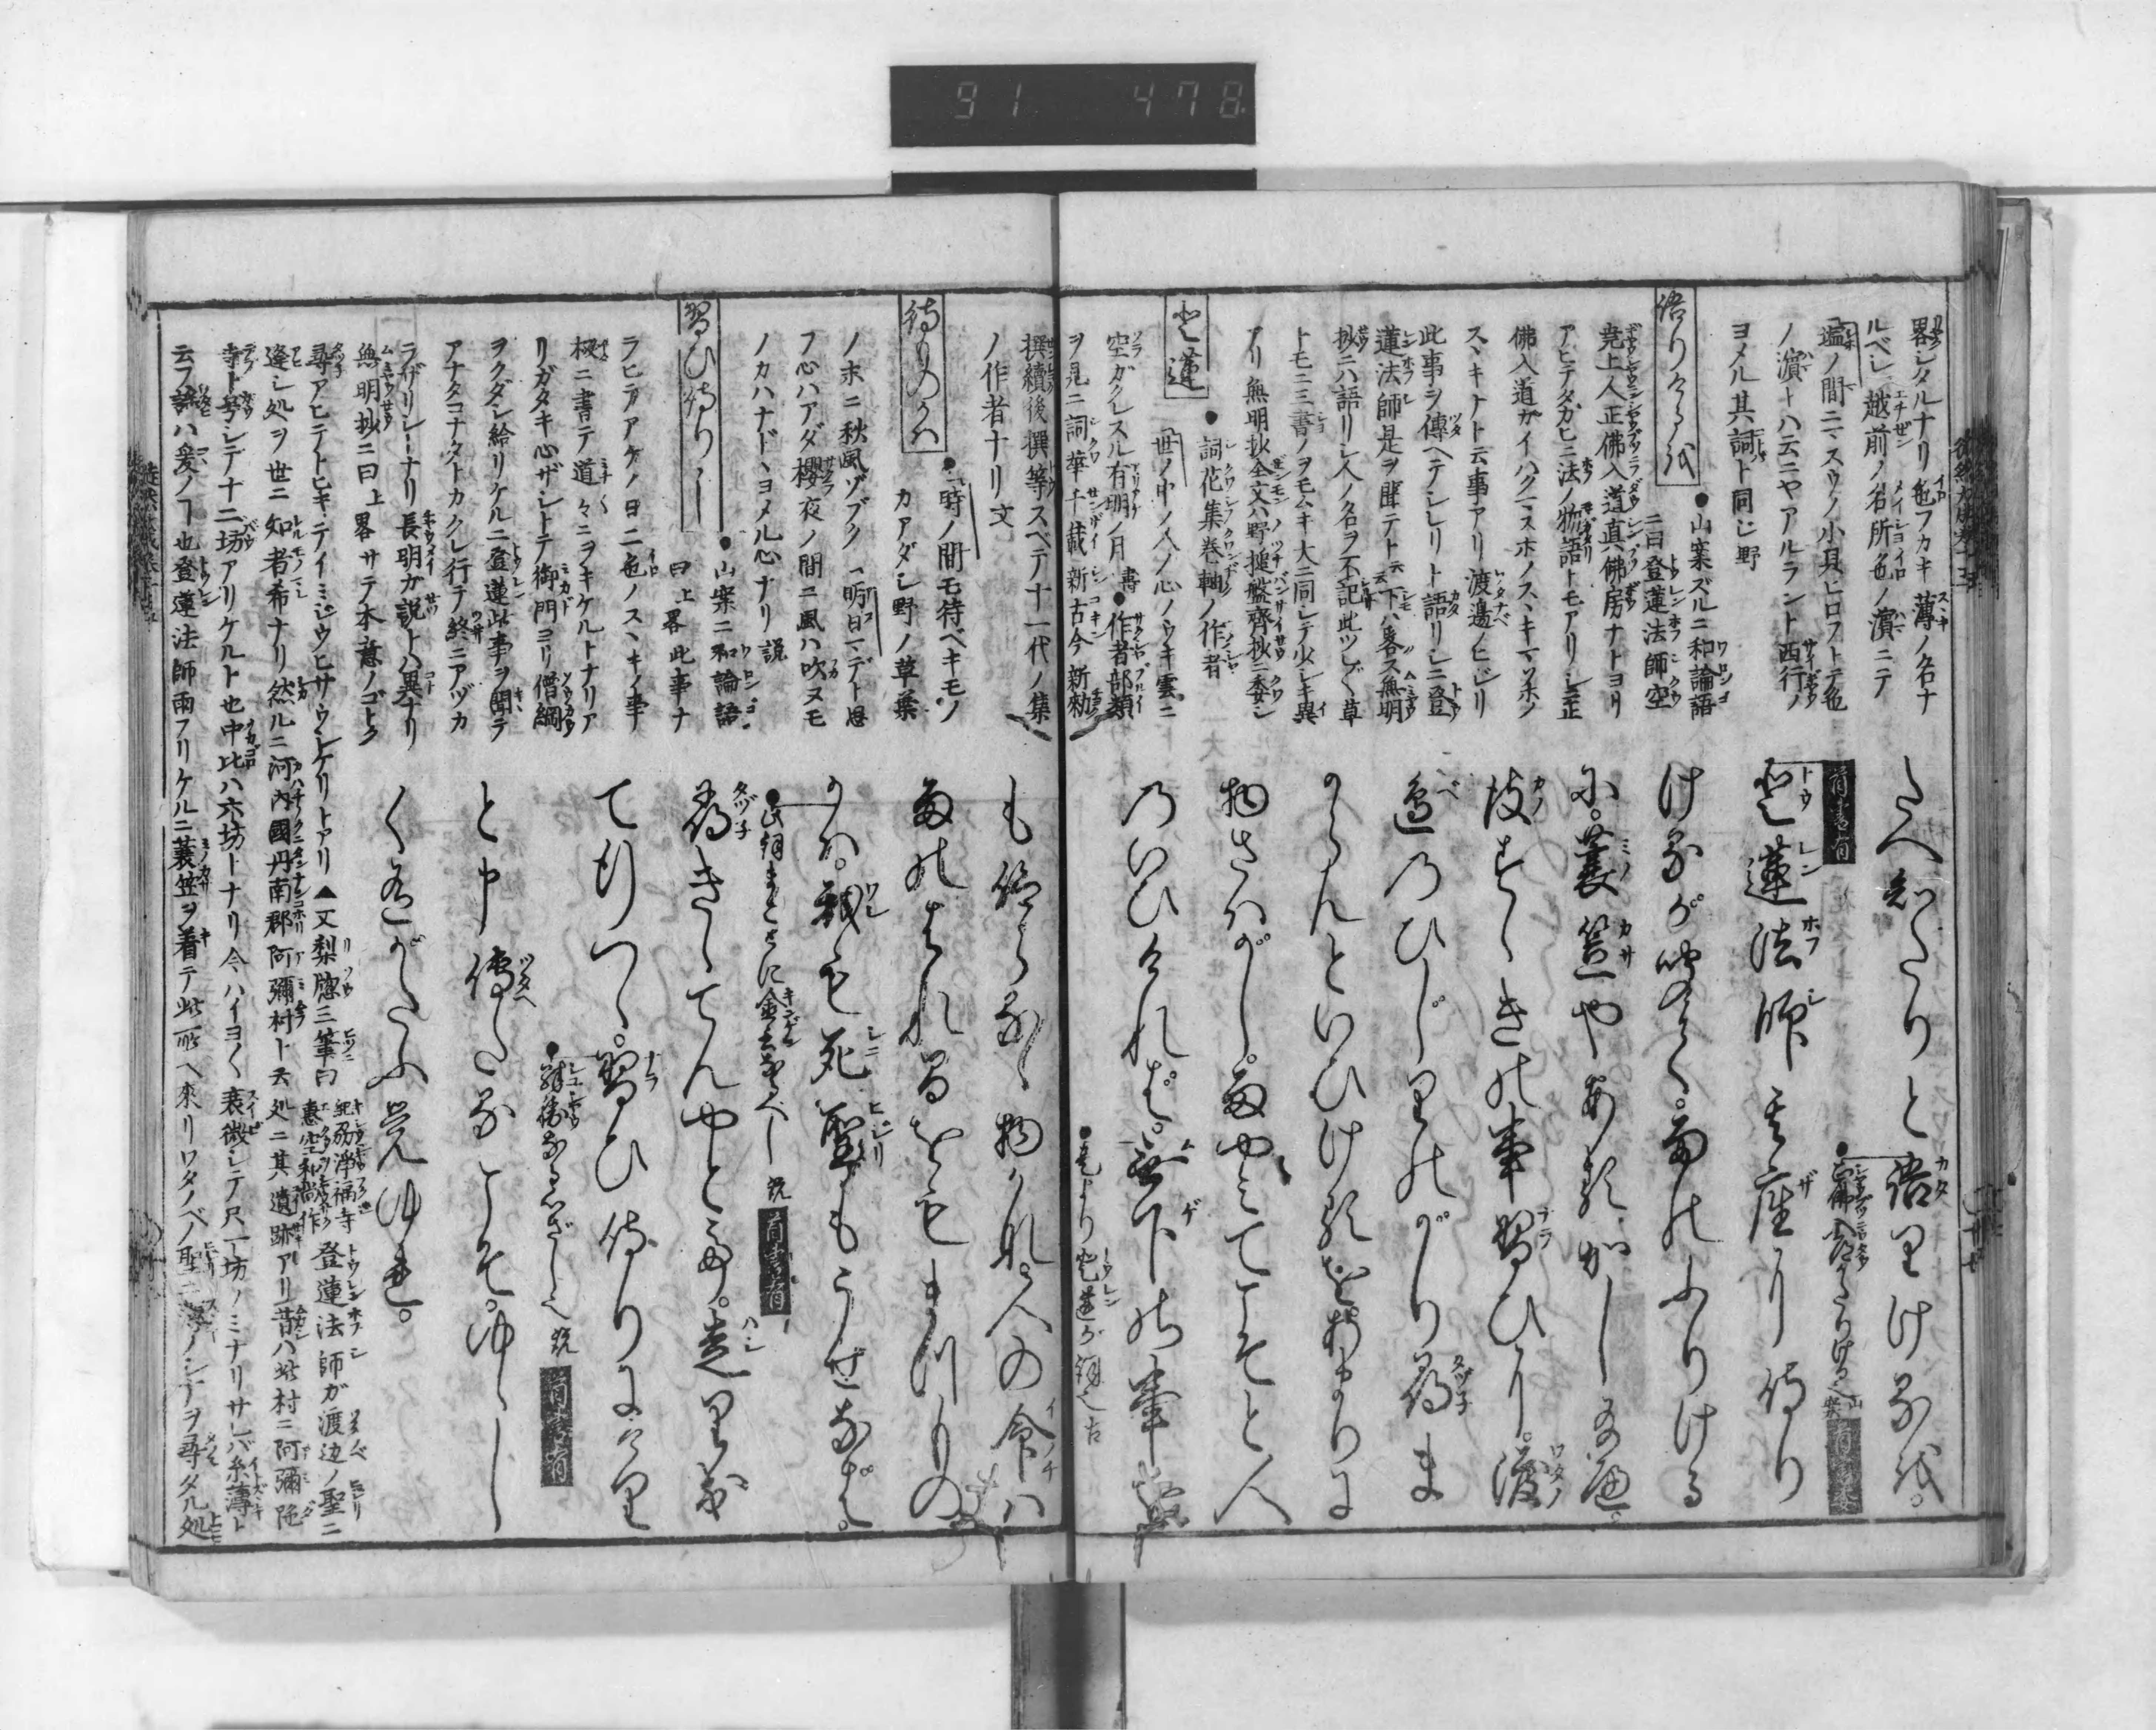 91 478
畧シタルナリ色フカキ薄ノ名ナ
ルベシ越前ノ名所色ノ濵ニテ
塩ノ間ニマスウノ小貝ヒロフトテ色
ノ濵トハ云ニヤアルラント西行ノ
ヨメル其詞ト同じ野
語りけるを
●山案ズルニ和論語
ニ曰登蓮法師空
尭上人正佛入道真佛房ナトヨリ
アヒテタカヒニ法ノ物語トモアリシニ正
佛入道ガイハク
スヽキナト云事アリ渡邉ノヒジリ
此事ヲ傳ヘテシレリト語リシニ登
蓮法師是ヲ聞テト云下ハ畧ス無明
抄ニハ語リシ人ノ名ヲ不記此ツレ〲草
トモニ三書ノヲモムキ大ニ同シテ少シキ異
アリ無明抄全文ハ野槌盤齊抄ニ委シ
登蓮
●詞花集巻軸ノ作者
世ノ中ノ人ノ心ノウキ雲ニ
空ガクレスル有明ノ月 書●作者部類
ヲ見ニ詞華千載新古今新勅
たへ知たりと語りけるを。
登蓮法師其座に侍り
けるが聞て。雨のふりける
に。蓑笠やある。かし給へ。
彼すゝきの事習ひに。渡
邉のひじりのがり尋ま
からんといひけるを。あまりに
物さはがし。雨やみてこそと人
のいひければ。無下の事
撰續後撰等スベテ十一代ノ集
ノ作者ナリ文
待ものかは
●時ノ間モ待ベキモノ
カアダシ野ノ草葉
ノ末ニ秋風ゾフク 明日マデト思
フ心ハアダ櫻夜ノ間ニ風ハ吹ヌモ
ノカハナド、ヨメル心ナリ 説
習ひ侍りし
●山案ニ和論語
曰上畧此事ナ
ラヒテアケノ日ニ色ノスヽキノ事
板ニ書テ道々ニヲキケルトナリア
リガタキ心ザシトテ御門ヨリ僧綱
ヲクダシ給リケルニ登蓮此事ヲ聞テ
アナタコナタトカクレ行テ終ニアヅカ
ラザリシトナリ長明ガ説トハ異ナリ
無明抄ニ曰上畧サテ本意ノゴトク
尋アヒテトヒキヽテイミジウヒサウシケリトアリ▲又梨窓三筆曰 紀刕淨福寺恵空和尚作 登蓮法師ガ渡辺ノ聖ニ
逢シ処ヲ世ニ知者希ナリ然ルニ河内國丹南郡阿彌村ト云処ニ其遺跡アリ昔ハ此村ニ阿彌陀
寺ト号シテ十二坊アリケルト也中比ハ六坊トナリ今ハイヨ〱衰微シテ只一坊ノミナリサレバ糸薄ト
云フ謡ハ爰ノ事也登蓮法師雨フリケルニ蓑笠ヲ着テ此所ヘ來リワタノベノ聖ニ薄ノシナヲ尋タル処
も仰らるゝ物かな。人の命ハ
雨のはれまをもまつもの
かは。我も死。聖もうせなば。
尋きゝてんやとて。走り出
て行つゝ。習ひ侍りにけり
と申傳たるこそ。ゆゝし
く有がたふ覚ゆれ。